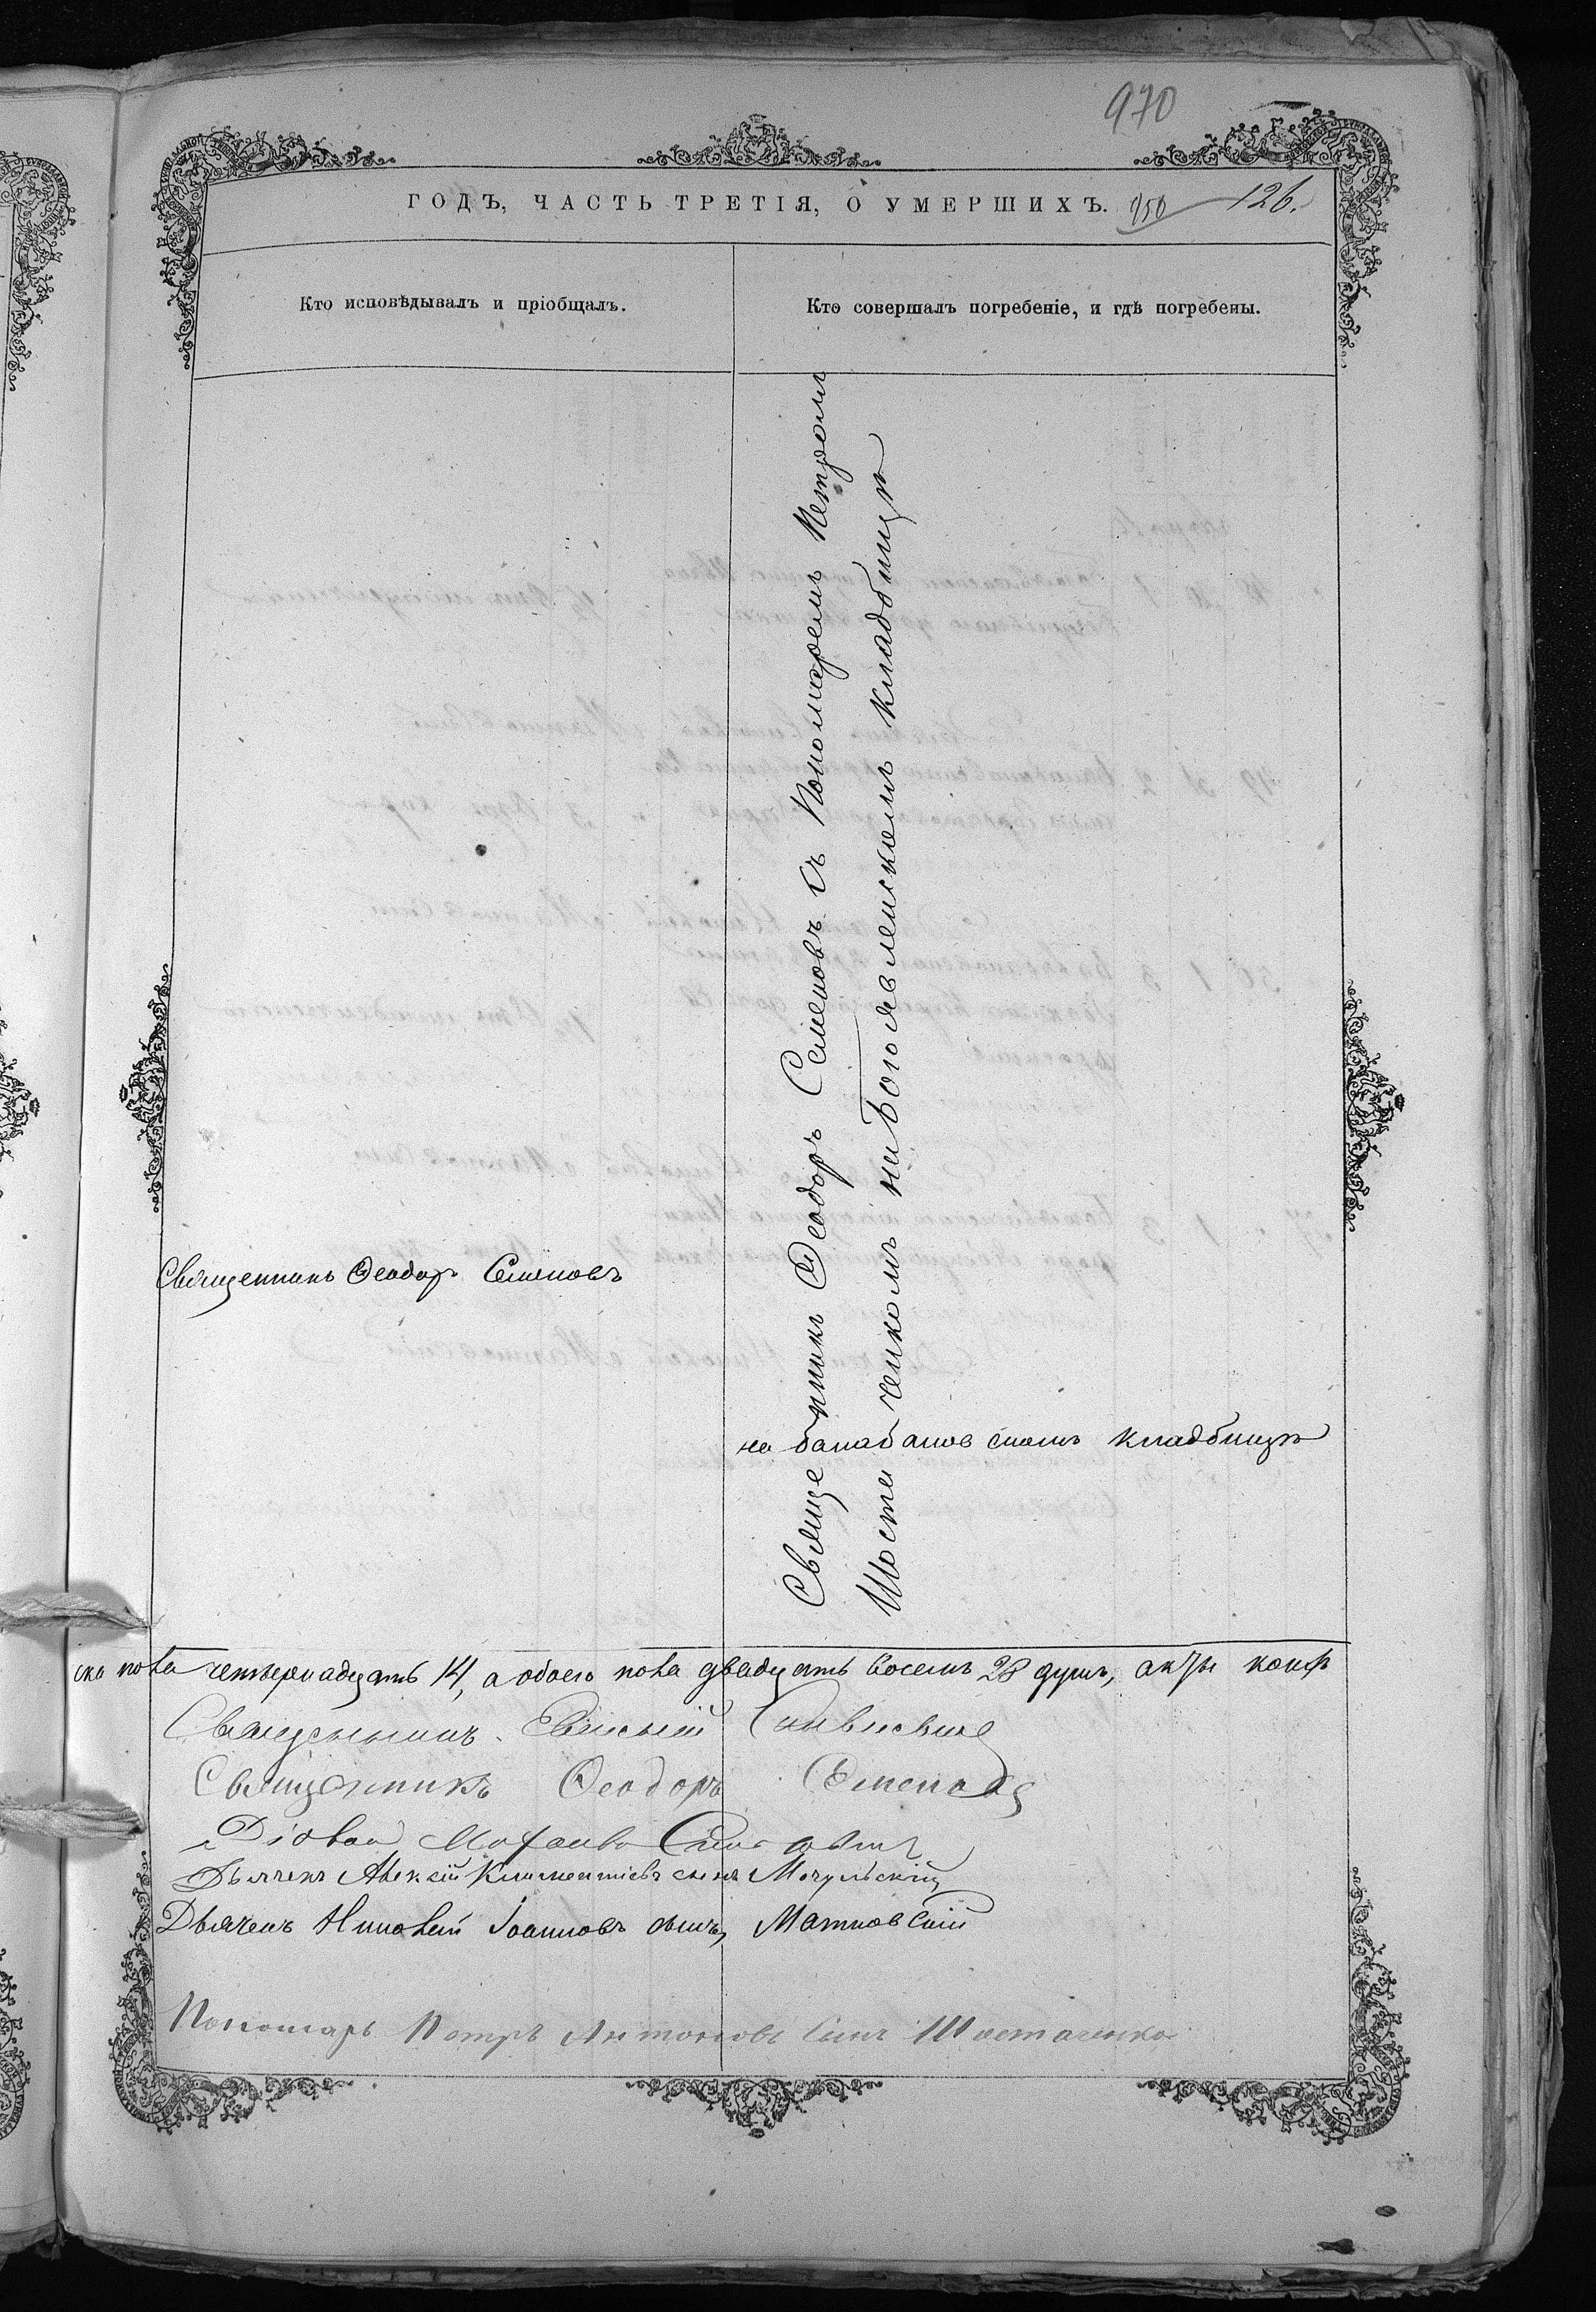 970
ГОДЪ, ЧАСТЬ ТРЕТІЯ, О УМЕРШИХЪ. 950 126.
Кто исповѣдывалъ и пріобщалъ.
Кто совершалъ погребеніе, и гдѣ погребены.
Священникъ Ѳеодоръ Семеновъ
Священникъ Ѳеодоръ Семеновъ съ Пономаремъ Петромъ
Шостаченкомъ на Богоявленскомъ кладбищѣ
на балабановскомъ кладбищѣ
ска пола четырнадцать 14, а обоего пола двадцать восемь 28 душъ,
Священникъ
Священникъ Ѳеодоръ Семеновъ
Дьячекъ Алексій Климентіевъ сынъ Мочульскій
Дьячекъ Іоанновъ сынъ, Матковскій
Пономарь Петръ Антоновъ Сынъ Шостаченко